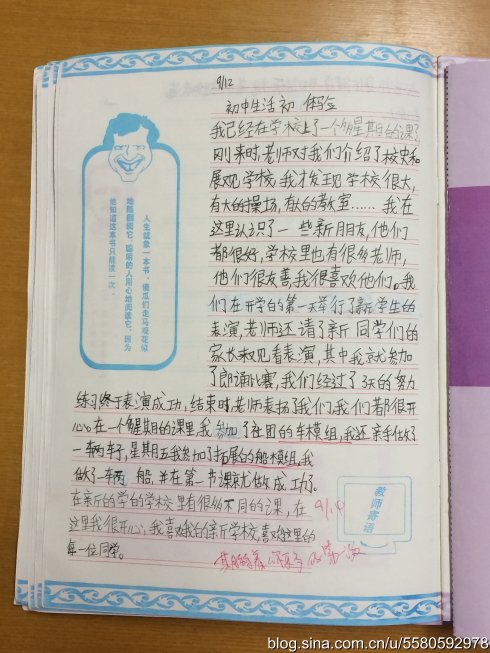 9/12
初中生活初体验
我已经在学校上了一个多星期的课了
刚来时,老师对我们介绍了校史和
展观学校,我才发现学校很大,
有大的操场,有大的教室……我在
这里认识了一些新朋友,他们
都很好,学校里也有很多老师,
他们很友善,我很喜欢他们。我
们在开学的第一天举行了新学生的
表演,老师还请了新同学们的
家长来观看表演,其中我就参加
了朗诵比赛,我们经过了3天的努力
练习终于表演成功,结束时老师表扬了我们,我们都很开
心。在一个星期的课里,我参加了社团的车模组,我还亲手做了
一辆车子,星期五我参加了拓展的船模组,我
做了一辆船,并在第一节课就做成功了。
在新的学的学校里有很多不同的课,在
这里我很开心,我喜欢我的新学校,喜欢这里的
每一位同学。
人生就象一本书,傻瓜们走马观花似
地随手翻阅它,聪明的人用心地阅读它,因为
他知道这本书只能读一次。
教师寄语
9/14
blog.sina.com.cn/u/5580592978